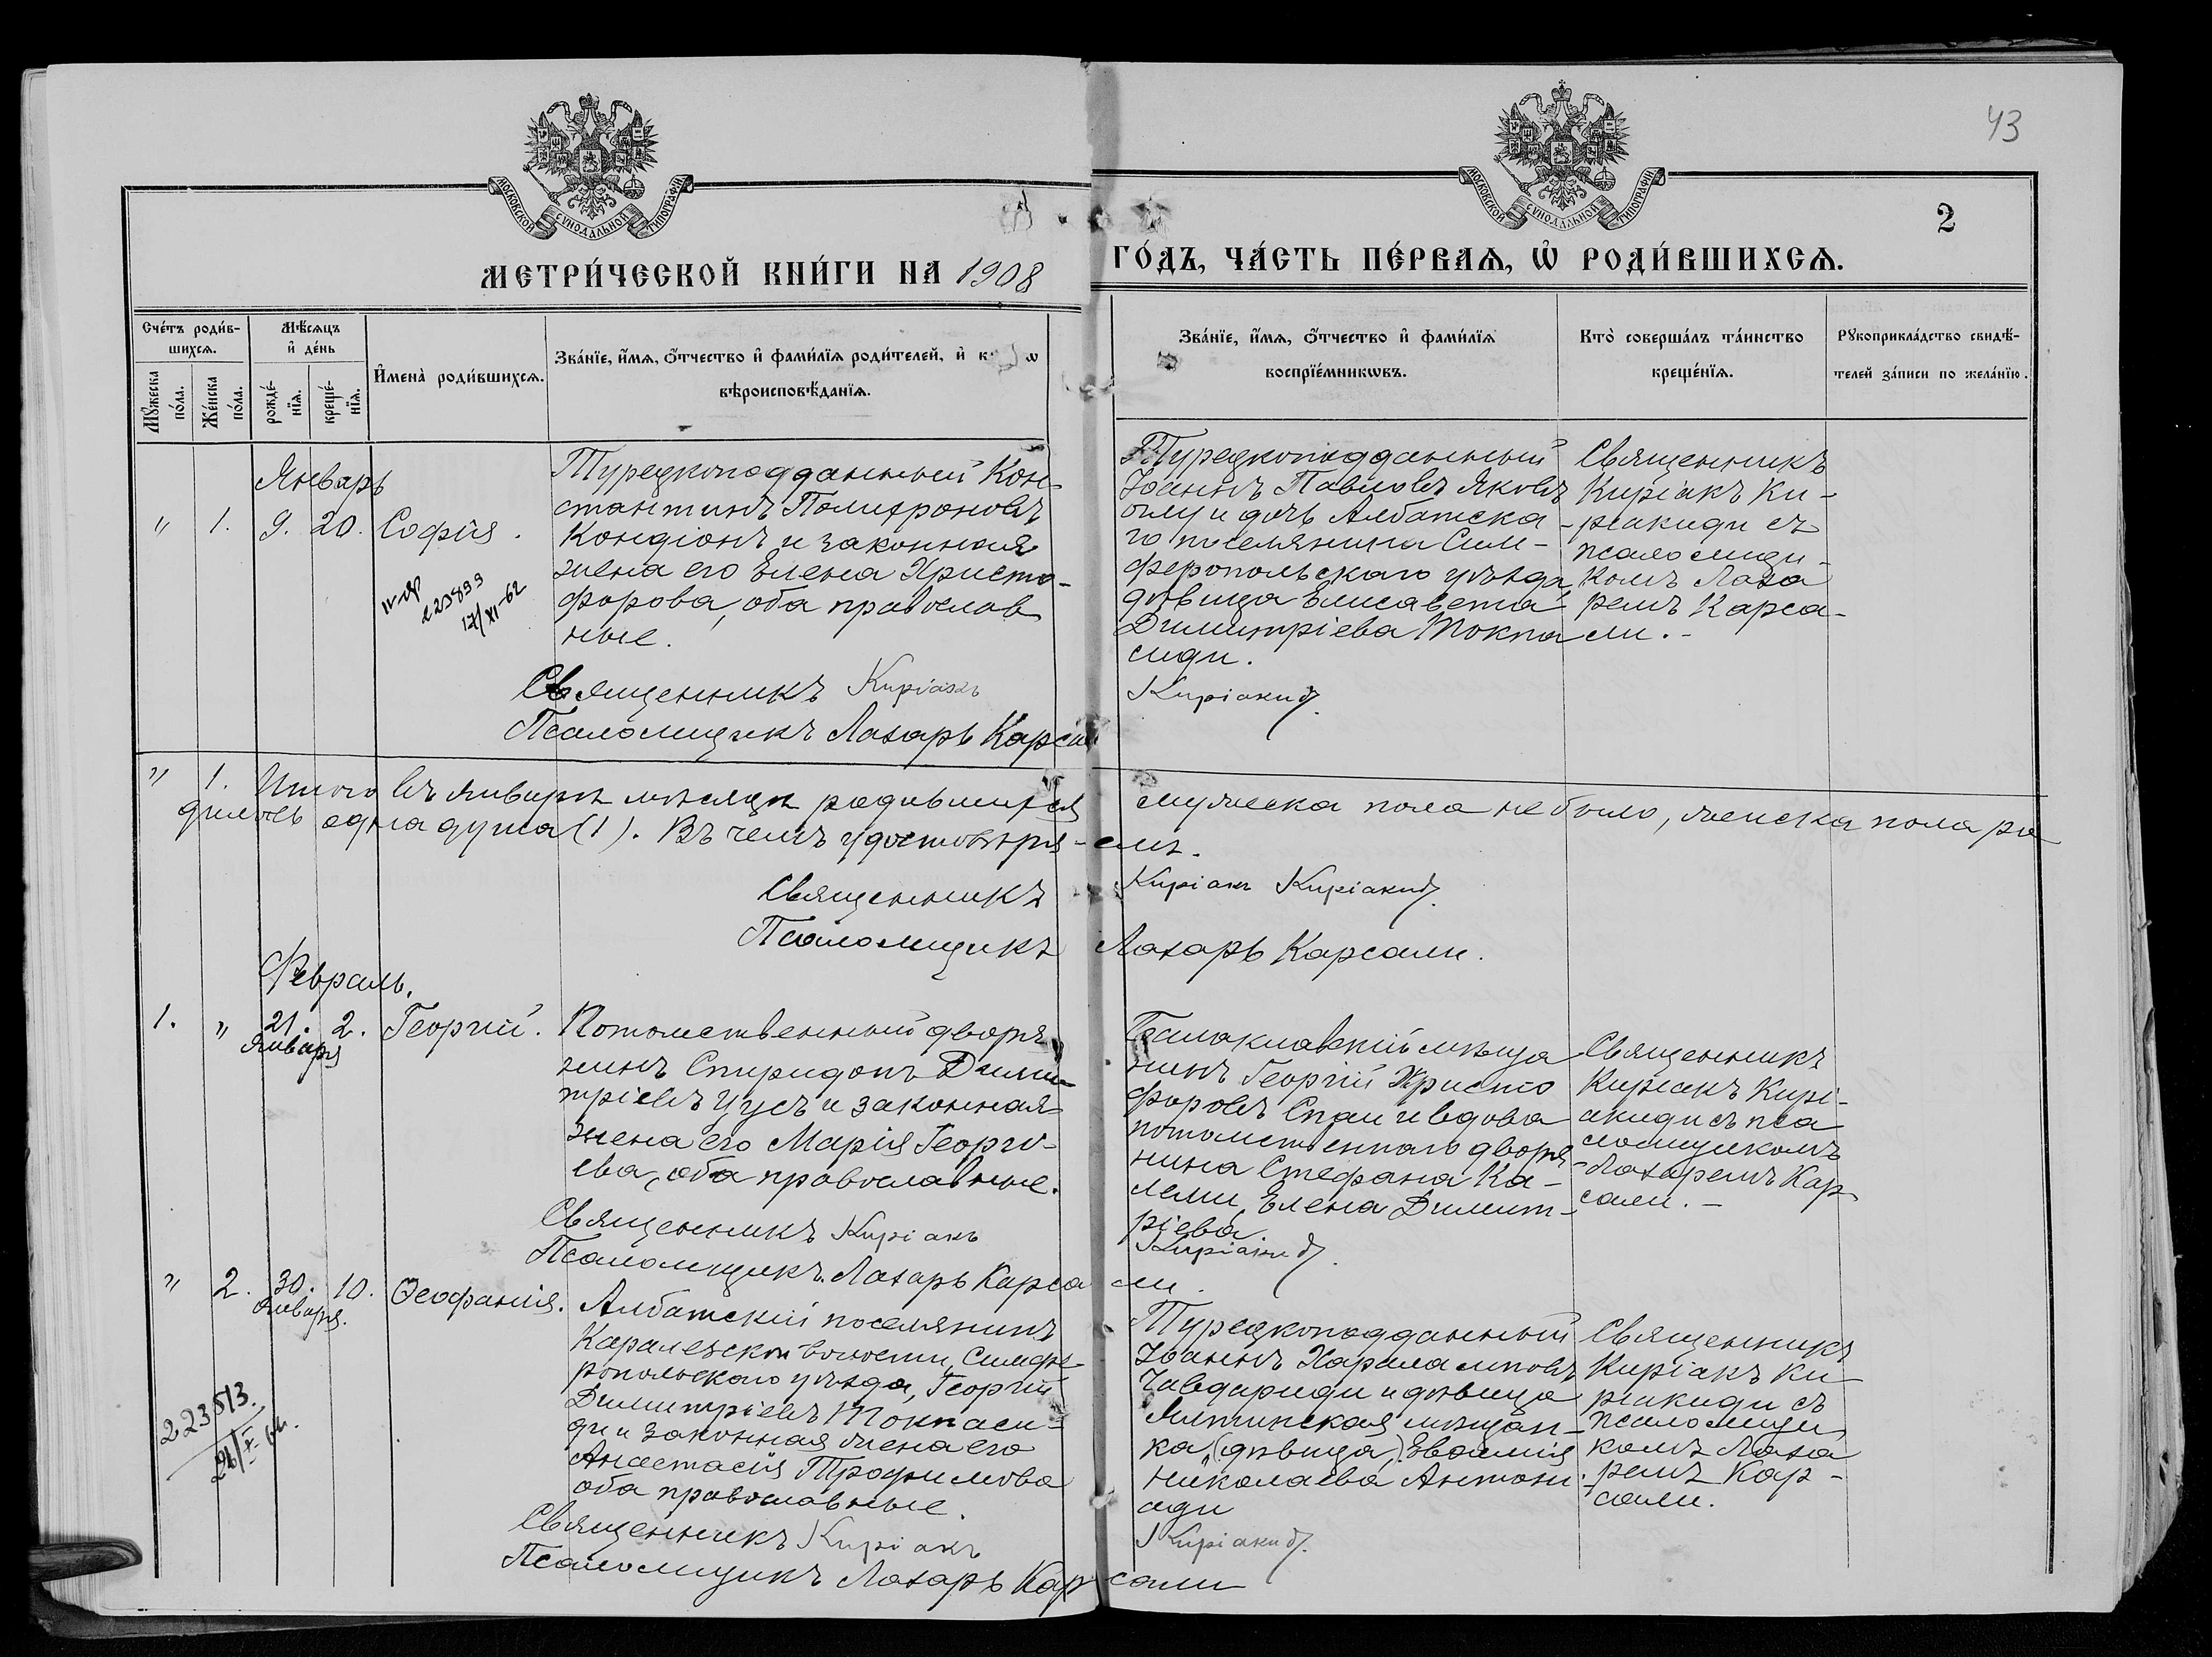 43
МОСКОВСКОЙ СѴНОДАЛЬНОЙ ТИПОГРАФІИ
МОСКОВСКОЙ СѴНОДАЛЬНОЙ ТИПОГРАФІИ
2
МЕТРИ́ЧЕСКОЙ КНИ́ГИ НА 1908
ГО́ДЪ, ЧА́СТЬ ПЕ́РВАѦ, Ѡ҆ РОДИ́ВШИХСѦ.
Сче́тъ роди́в-
шихсѧ.
Мꙋ́жеска
по́ла.
Же́нска
по́ла.
Мѣ́сѧцъ
и҆ де́нь
рожде́-
нїѧ.
креще́-
нїѧ.
И҆мена̀ роди́вшихсѧ.
Зва́нїе, и҆́мѧ, ѻ҆́тчество и҆ фами́лїѧ роди́телей, и҆ к
вѣроисповѣ́данїѧ.
Зва́нїе, и҆́мѧ, ѻ҆́тчество и҆ фами́лїѧ
воспрїе́мникѡвъ.
Кто̀ соверша́лъ та́инство
креще́нїѧ.
Рꙋкоприкла́дство свидѣ́-
телей за́писи по жела́нїю.
Январь
" 1. 9. 20. Софія.
223833
17/XI-62
Турецкоподданный Кон-
стантинъ Полихроновъ
Кондіонъ и законная
жена его Елена Христо-
форова, оба православ
ные.
Священникъ Киріакъ
Псаломщикъ Лазарь Карсали
Турецкоподданный
Іоаннъ Павловъ Яковъ
оглу и дочь Албатска-
го поселянина Сим-
феропольскаго уѣзда,
дѣвица Елисавета
Димитріева Токпа
сиди.
Киріакиди.
Священникъ
Киріакъ Ки-
ріакиди съ
псаломщи-
комъ Лаза
ремъ Карса-
ли.-
" 1. Итого въ январѣ мѣсяцѣ родившихся мужеска пола не было, женска пола ро
дилась одна душа (1). Въ чемъ удостовѣря-емъ.
Священникъ Киріакъ Киріакиди.
Псаломщикъ Лазарь Карсали.
Февраль.
1. " 21. 2. Георгій.
Января
Потомственный дворя
нинъ Спиридонъ Дими-
тріевъ Цусъ и законная
жена его Марія Георгі-
ева, оба православные.
Священникъ Киріакъ
Псаломщикъ Лазарь Карса ли.
Балаклавскій мѣща
нинъ Георгій Христо
форовъ Спаи и вдова
потомственнаго дворя-
нина Стефана Ка-
леми, Елена Димит-
ріева.
Киріакиди.
Священникъ
Киріакъ Кирі-
акиди съ пса
ломщикомъ
Лазаремъ Кар
сали.-
" 2. 30. 10. Ѳеофанія.
Января.
223813.
26/X 64.
Албатскій поселянинъ
Каралезской волости, Симфе-
ропольскаго уѣзда, Георгій
Димитріевъ Токпаси-
ди и законная жена его
Анастасія Трофимова
оба православные.
Священникъ Киріакъ
Псаломщикъ Лазарь Карсали
Турецкоподданный
Іоаннъ Хараламповъ
Чавдариди и дѣвица
Ялтинская мѣщан-
ка, (дѣвица) Евѳимія
Николаева Антони-
ади
Киріакиди.
Священникъ
Киріакъ Ки-
ріакиди съ
псаломщи
комъ Лаза
ремъ Кар-
сали.